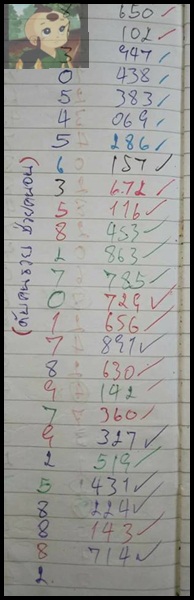 650 ✓
102 ✓
3 947 ✓
0 438 ✓
5 383 ✓
4 069 ✓
5 286 ✓
6 157 ✓
3 672 ✓
5 116 ✓
8 453 ✓
2 863 ✓
7 785 ✓
0 729 ✓
1 656 ✓
7 891 ✓
8 630 ✓
9 142 ✓
7 360 ✓
9 327 ✓
2 519 ✓
5 431 ✓
8 224 ✓
8 143 ✓
8 714 ✓
2